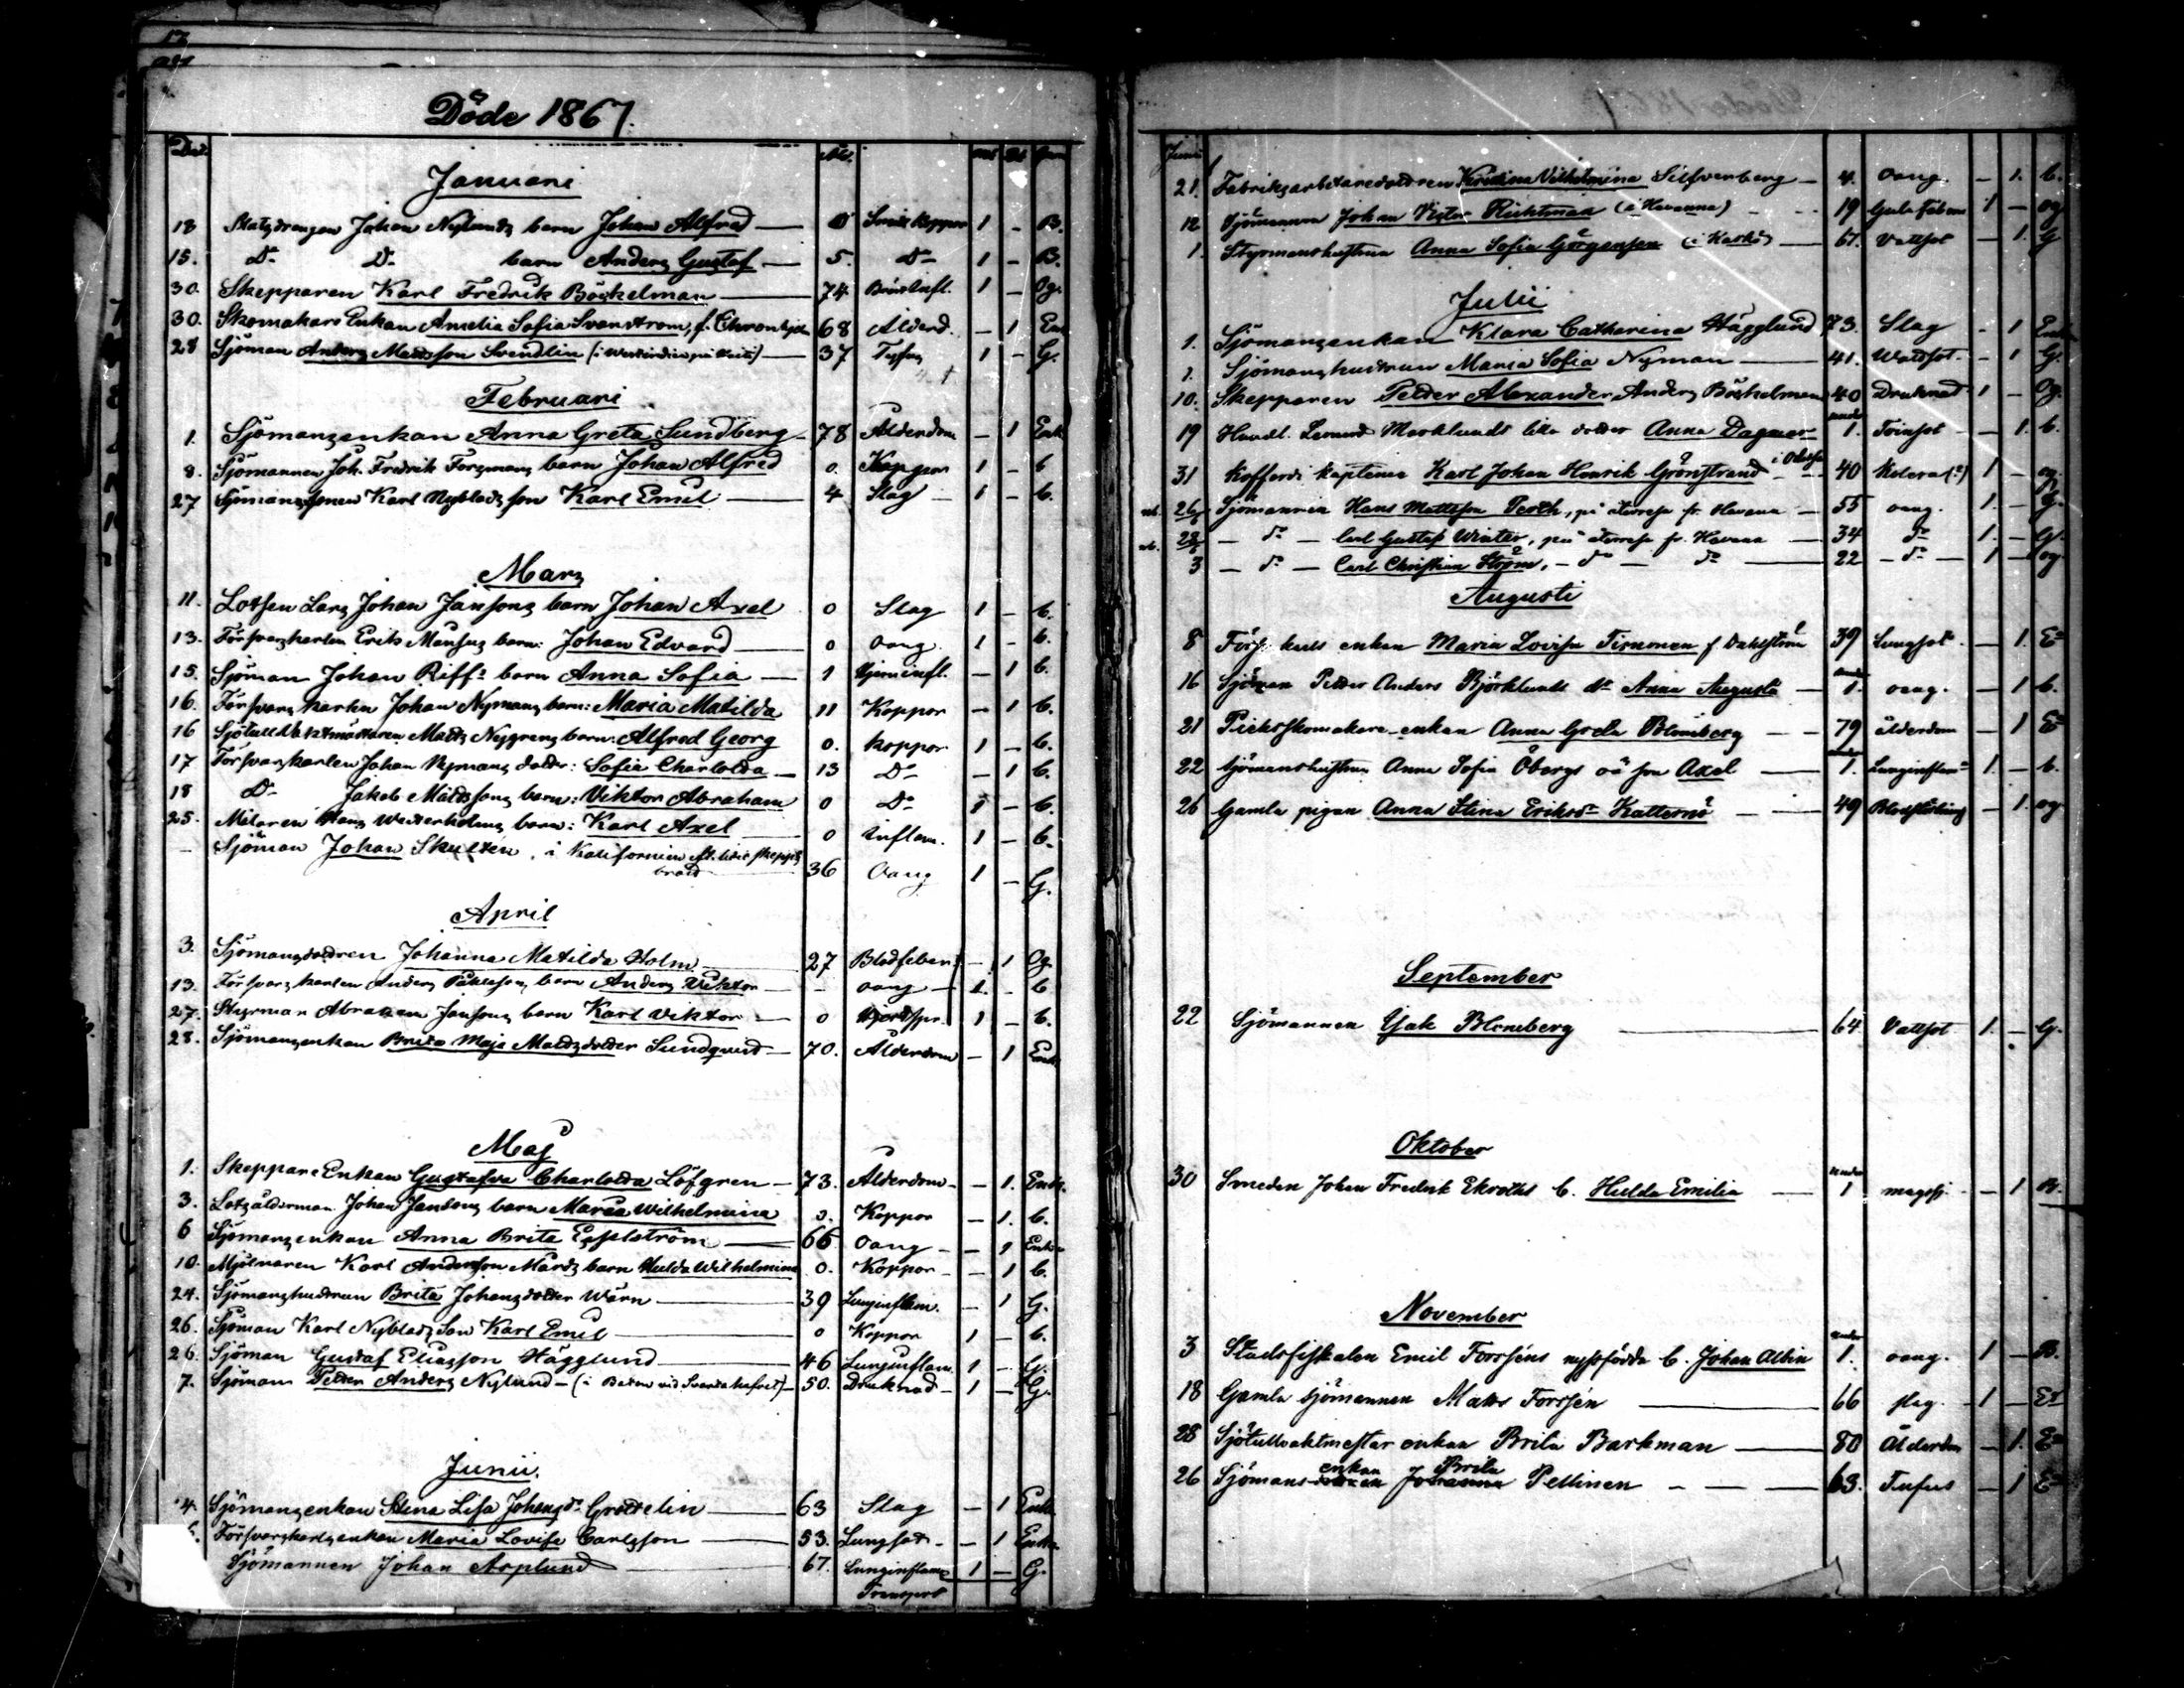 Döde 1867.
Januari
13 Statsdrengen Johan Nylunds barn Johan Alfred 0 koppor 1 - B.
15. D:o D:o barn Anders Gustaf 5. D:o 1 - B.
30. Skepparen Karl Fredrik Böckelman 74. Bröstinfl. 1 - Og.
30. Skomakare Enkan Amelia Sofia Svanström, f. 68 Ålderd. - 1 Enk
28 Sjöman Anders Mattsson Svendlin 37 1 - G.
Februari
1. Sjömansenkan Anna Greta Sundberg 78 Ålderdom - 1 Enk
8. Sjömannen Joh. Fredrik Forsmans barn Johan Alfred 0. Koppor 1 - b
27 Karl Nyblads son Karl Emil 4 Slag 1 - b.
Mars
11. Lotsen Lars Johan Jansons barn Johan Axel 0 Slag 1 - b.
13. Försvarskarlen Eriks barn: Johan Edvard 0 oang. 1 - b.
15. Sjöman Johan Riffs barn Anna Sofia 1 Hjerninfl. - 1 b.
16. Försvarskarln Johan Nymans barn: Maria Matilda 11 Koppor - 1 b.
16 Sjötullvaktmästaren Matts Nygrens barn: Alfred Georg 0. koppor 1 - b.
17 Försvarskarlen Johan Nymans dotter: Sofia Charlotta 13 D:o - 1 b.
18 D:o Jakob Mattssons barn: Viktor Abraham 0 D:o 1 - b.
25. Hans Westerholms barn: Karl Axel 0 Inflam. 1 - b.
- Sjöman Johan Skultén, i Kalifornien skepps
brott 36 Oang 1 - G.
April
3. Sjömansdottren Johanna Matilda Holm 27 Blodfeber - 1 Og.
13. Försvarskarlen Anders barn Anders Viktor - oang 1. - b
27. Styrman Abraham Jansons barn Karl Viktor 0 1 - b.
28. Sjömansenkan Brita Maja Mattsdotter Sundqvist 70. Ålderdom - 1 Enk.
Maj
1. Skeppare Enkan Gustafva Charlotta Löfgren 73. Ålderdom - 1. Enk.
3. Lotsålderman Johan Jansons barn Maria Wilhelmina 0. Koppor - 1. b.
6 Sjömansenkan Anna Brita 66 Oang - 1 Enk
10. Mjölnaren Karl Anderson barn Hulda Wilhelmina 0. Koppor - 1 b.
24. Sjömanshustrun Brita Johansdotter Wärn 39 Lunginflam. - 1 G.
26. Sjöman Karl Nyblads Son Karl Emil 0 Koppor 1 - b.
26. Sjöman Gustaf Eliasson Hägglund 46 Lunginflam. 1 - G.
7. Sjöman Petter Anders Nylund - (i Batum vid Svarta hafvet) 50. Druknad 1 - G.
Junii.
4. Sjömansenkan Stina Lisa Johansdr Grottelin 63 Slag - 1 Enk.
Försvarskarlsenkan Maria Lovisa Carlsson 53. Lungsot - 1 Enk.
Sjömannen Johan Asplund 67. Lunginflam. 1 - G.
Transport
Junii
21. Fabriksarbetaredottren Kristina Vilhelmina Silfverberg 4. oang. - 1. b.
12 Sjömannen Johan Victor Richtman (i Havanna) 19 Gula febern 1 - og
1. Styrmanshustrun Anna Sofia Görgensen (i Kaskö) 61. Vattsot - 1. G
Julii
1. Sjömansenkan Klara Catharina Hägglund 73. Slag - 1 Enk
1. Sjömanshustrun Maria Sofia Nyman 41. Wattsot - 1 G.
10. Skepparen Petter Alexander Anders Böckelman 40 Druknad 1 - Og.
19 Handl. Leonard Marklunds lilla dotter Anna Dagmar under 1. - 1. b.
31 Kofferdi kaptenen Karl Johan Henrik Grönstrand i Odessa 40 Kolera (?) 1 - og.
26 Sjömannen Hans Mattsson Perth, på återresa fr. Havana 55 oang. 1. - G.
28 - d:o - Carl Gustaf Winter, på återresa fr. Havana 34 d:o 1. - G.
3 - d:o - Carl Christian Ström, - d:o - d:o 22 - d:o - 1 - og
Augusti
8 Förs. karls enkan Maria Lovisa Timonen f. Dahlström 39 Lungsot - 1. E:a
16 Sjöman Petter Anders Björklunds dr Anna Augusta under 1. oang. - 1 b.
21 Pickskomakare-enkan Anna Greta Blomberg 79 ålderdom - 1 E:a
22 Sjömanshustrun Anna Sofia Öbergs oä son Axel under 1. Lunginflam:n 1. - b.
26 Gamla pigan Anna Stina Eriksdr Katternö 49 - 1. og.
September
22 Sjömannen Isak Blomberg 64. Vattsot 1. - G.
Oktober
30 Smeden Johan Fredrik Ekroths b. Hulda Emilia under 1 - 1 B.
November
3 Stadsfiskalen Emil Forsséns nyssfödda b. Johan Albin under 1. oang. 1 - B.
18 Gamla sjömannen Matts Forssén 66 slag. 1 - E:g
28 Sjötullvaktmestar enkan Brita Barkman 80 Ålderdom - 1. E:a
26 Sjömans enkan Brita Johanna Pellinen 63. Tyfus - 1 E:a